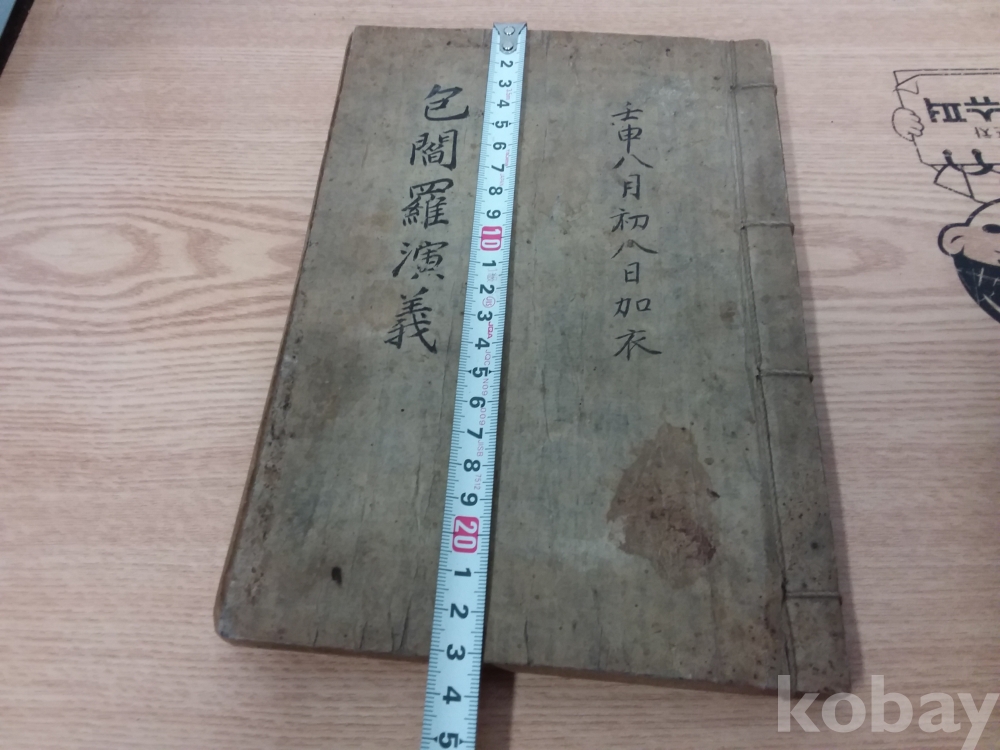 壬申八月初八日加衣
包閻羅演義
2 3 4 5 6 7 8 9 10 1 2 3 4 5 6 7 8 9 20 1 2 3 4 5
kobay